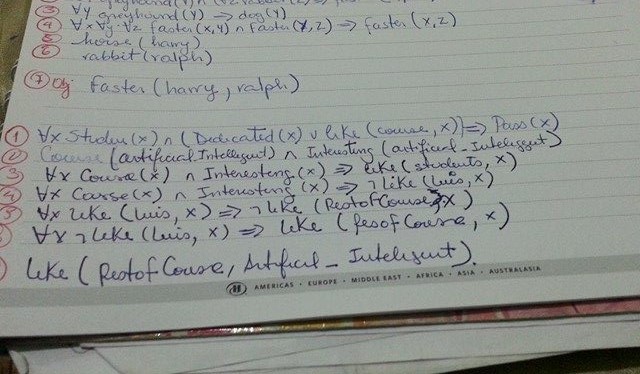 ③ ∀y greyhound(y) ⇒ dog(y)
④ ∀x ∀y ∀z faster(x,y) ∩ faster(y,z) ⇒ faster(x,z)
⑤ horse(harry)
⑥ rabbit(ralph)
⑦ Obj faster(harry, ralph)
① ∀x Studen(x) ∩ (Dedicated(x) ∪ like(course, x)) ⇒ Pass(x)
② Course(artificial Intelligent) ∩ Interesting(artificial-Inteligent)
3 ∀x Course(x) ∩ Interesting(x) ⇒ like(students, x)
4 ∀x Course(x) ∩ Interesting(x) ⇒ ¬like(luis, x)
5 ∀x like(luis, x) ⇒ ¬like(RestofCourse, x)
∀x ¬like(luis, x) ⇒ like(ResofCourse, x)
like(RestofCourse, Artificial_Inteligent).
AMERICAS · EUROPE · MIDDLE EAST · AFRICA · ASIA · AUSTRALASIA